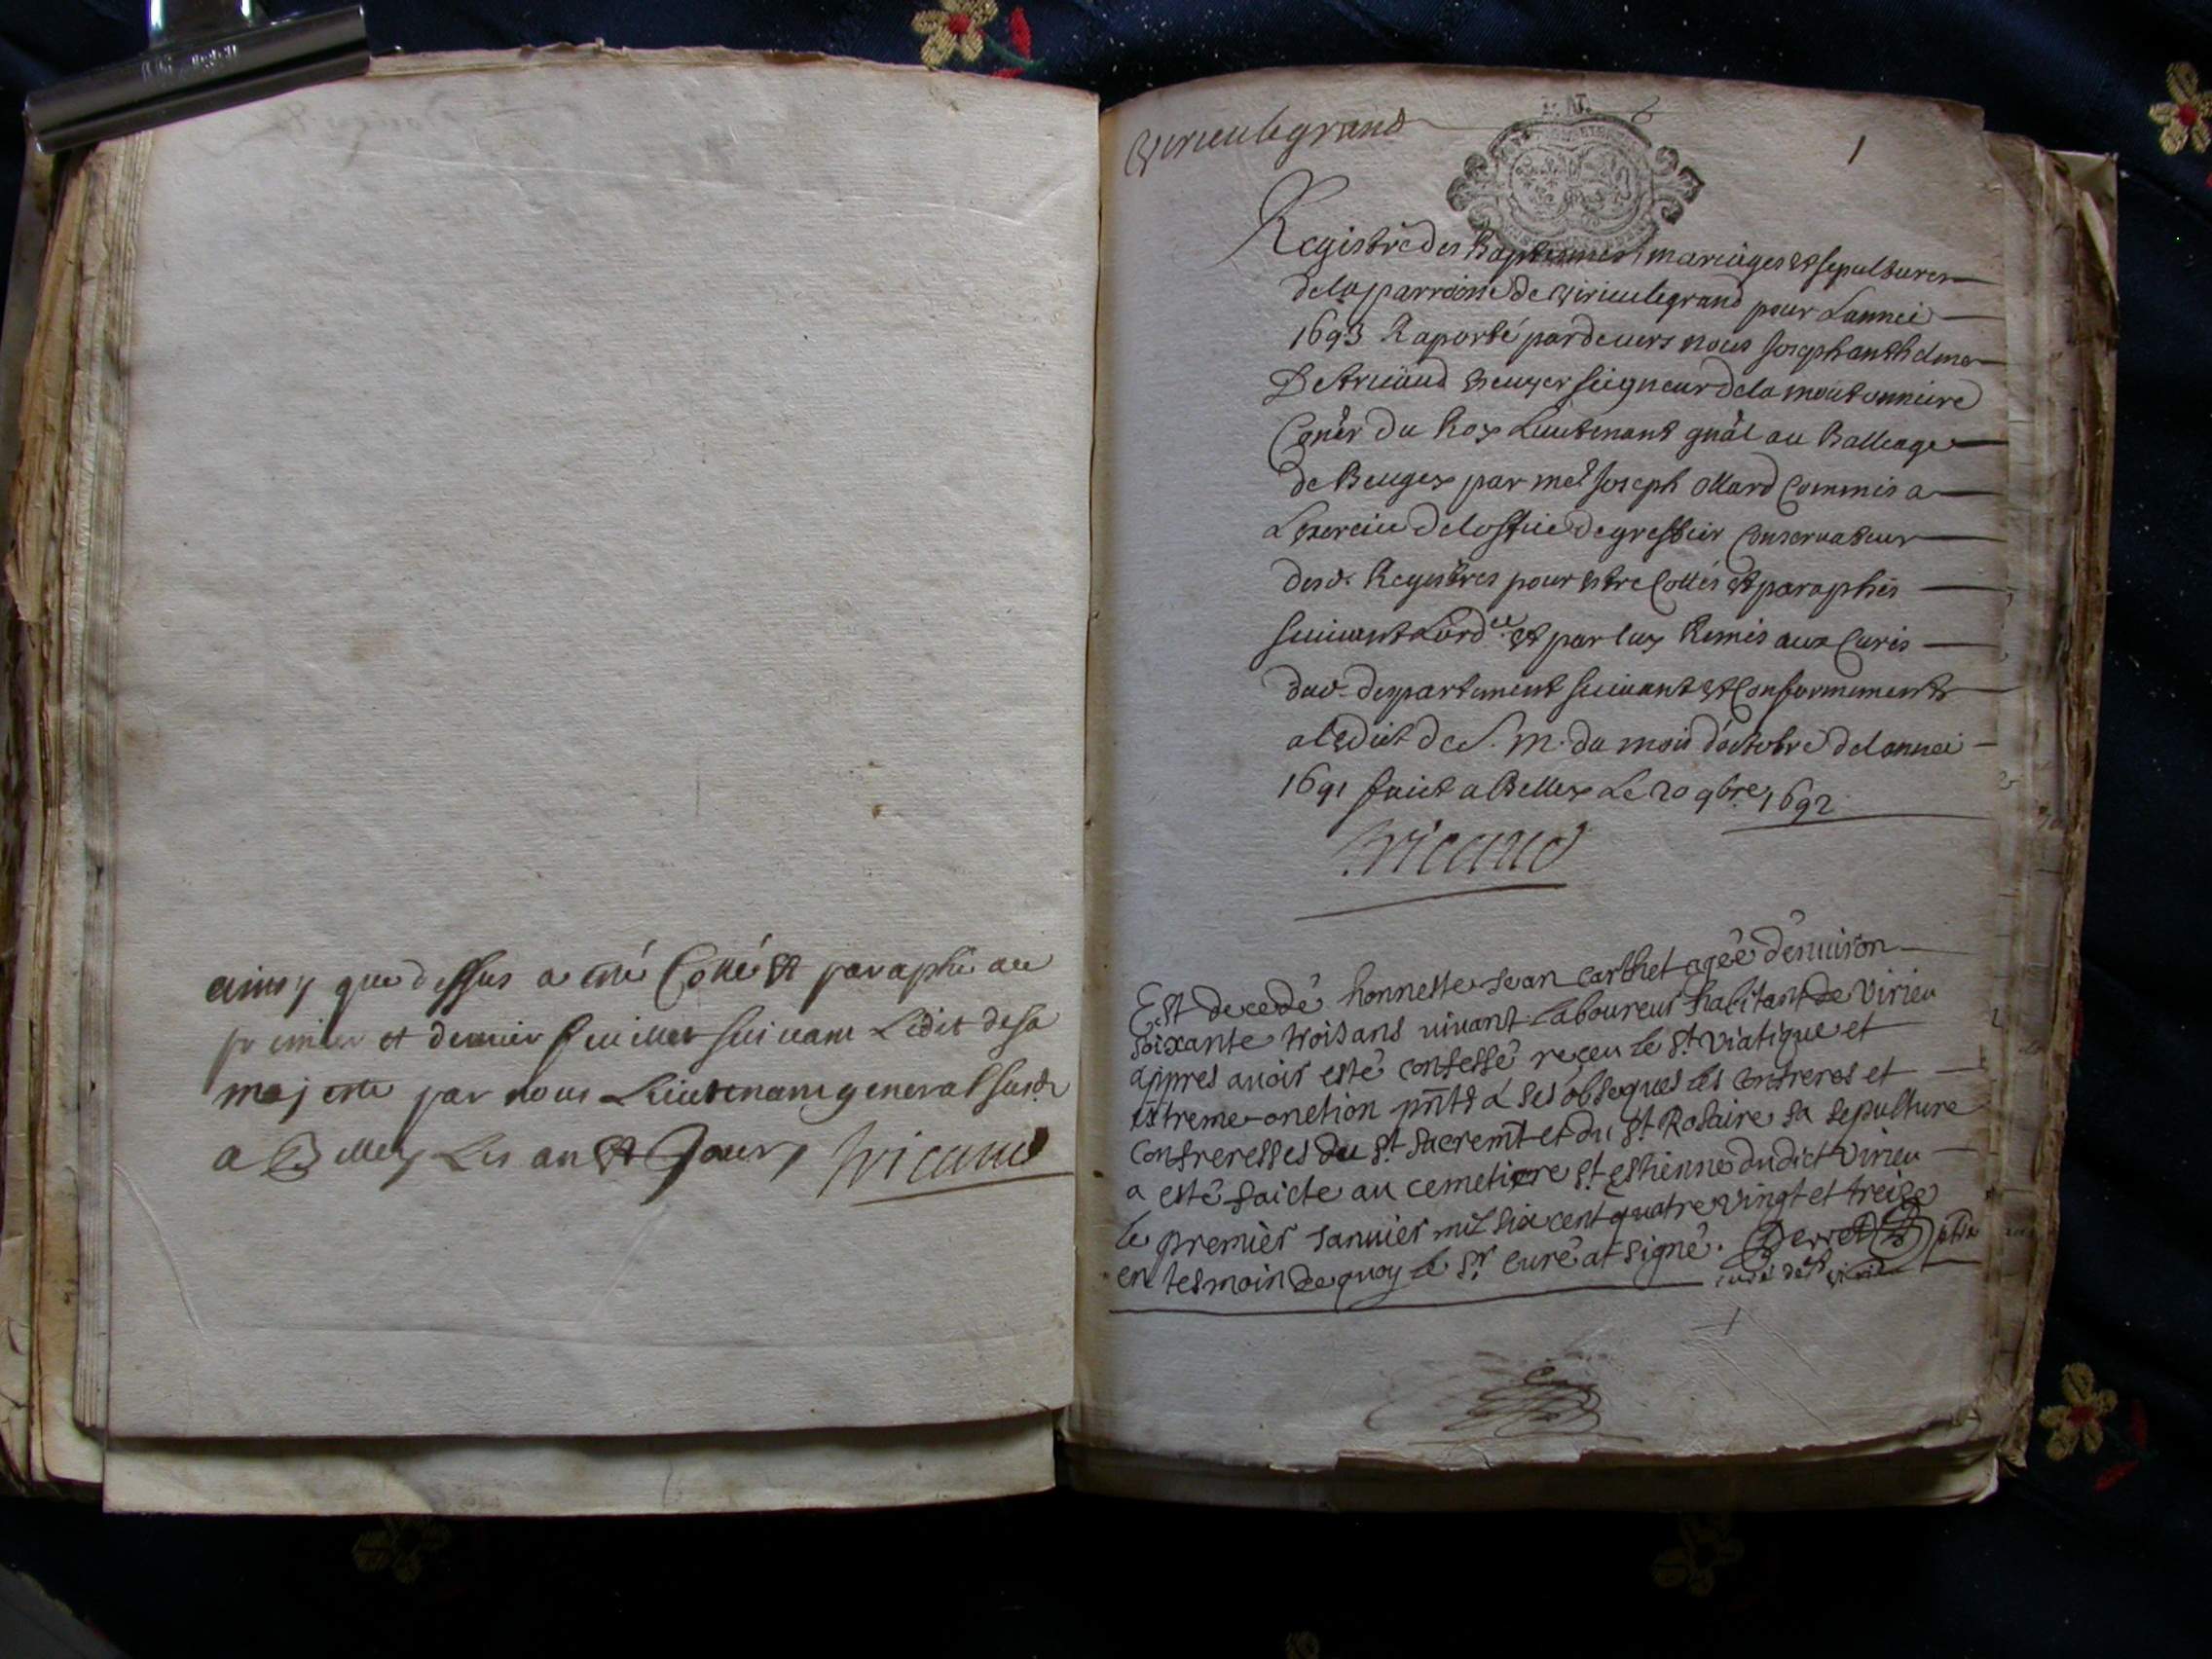 ainsy que dessus a esté Cotté et paraphé au
premier et dernier feuillet suivant Ledit de sa
majesté par nous Lieutenant general susd.
a Belley Les an et Jour,
Virieulegrand
1
Registre des Baptesmes mariages et sepultures
de la parroisse de Virieulegrand pour Lannee
1693 Raporté pardevers nous Joseph anthelme
De seigneur de la moutonniere
Coner du Roy Lieutenant gnal au Balleage
de Beugey par me Joseph Commis a
Lexercice de loffice de greffier Conservateur
desd. Registres pour estre Cottés et paraphés
suivant Lord.ce et par luy Remis aux Curés
dud. departement suivant et Conformement
a ledict de S. M. du mois d'octobre de lannee
1691 faict a Belley Le 20 9bre 1692
Est decedé honneste Jean Carthet agée d'enuiron
soixante trois ans uiuant Laboureur habitant de Virieu
appres auoir esté confessé reçeu le St. Viatique et
extreme-onction pnts a ses obseques les confreres et
confreresses du St. Sacremt et du St. Rosaire sa sepulture
a esté faicte au cemetiere St. Estienne dudict Virieu
le premier Januier mil six cent quatre vingt et treize
en tesmoin de quoy le Sr. curé at signé. Derret ptre
curé de Virieu